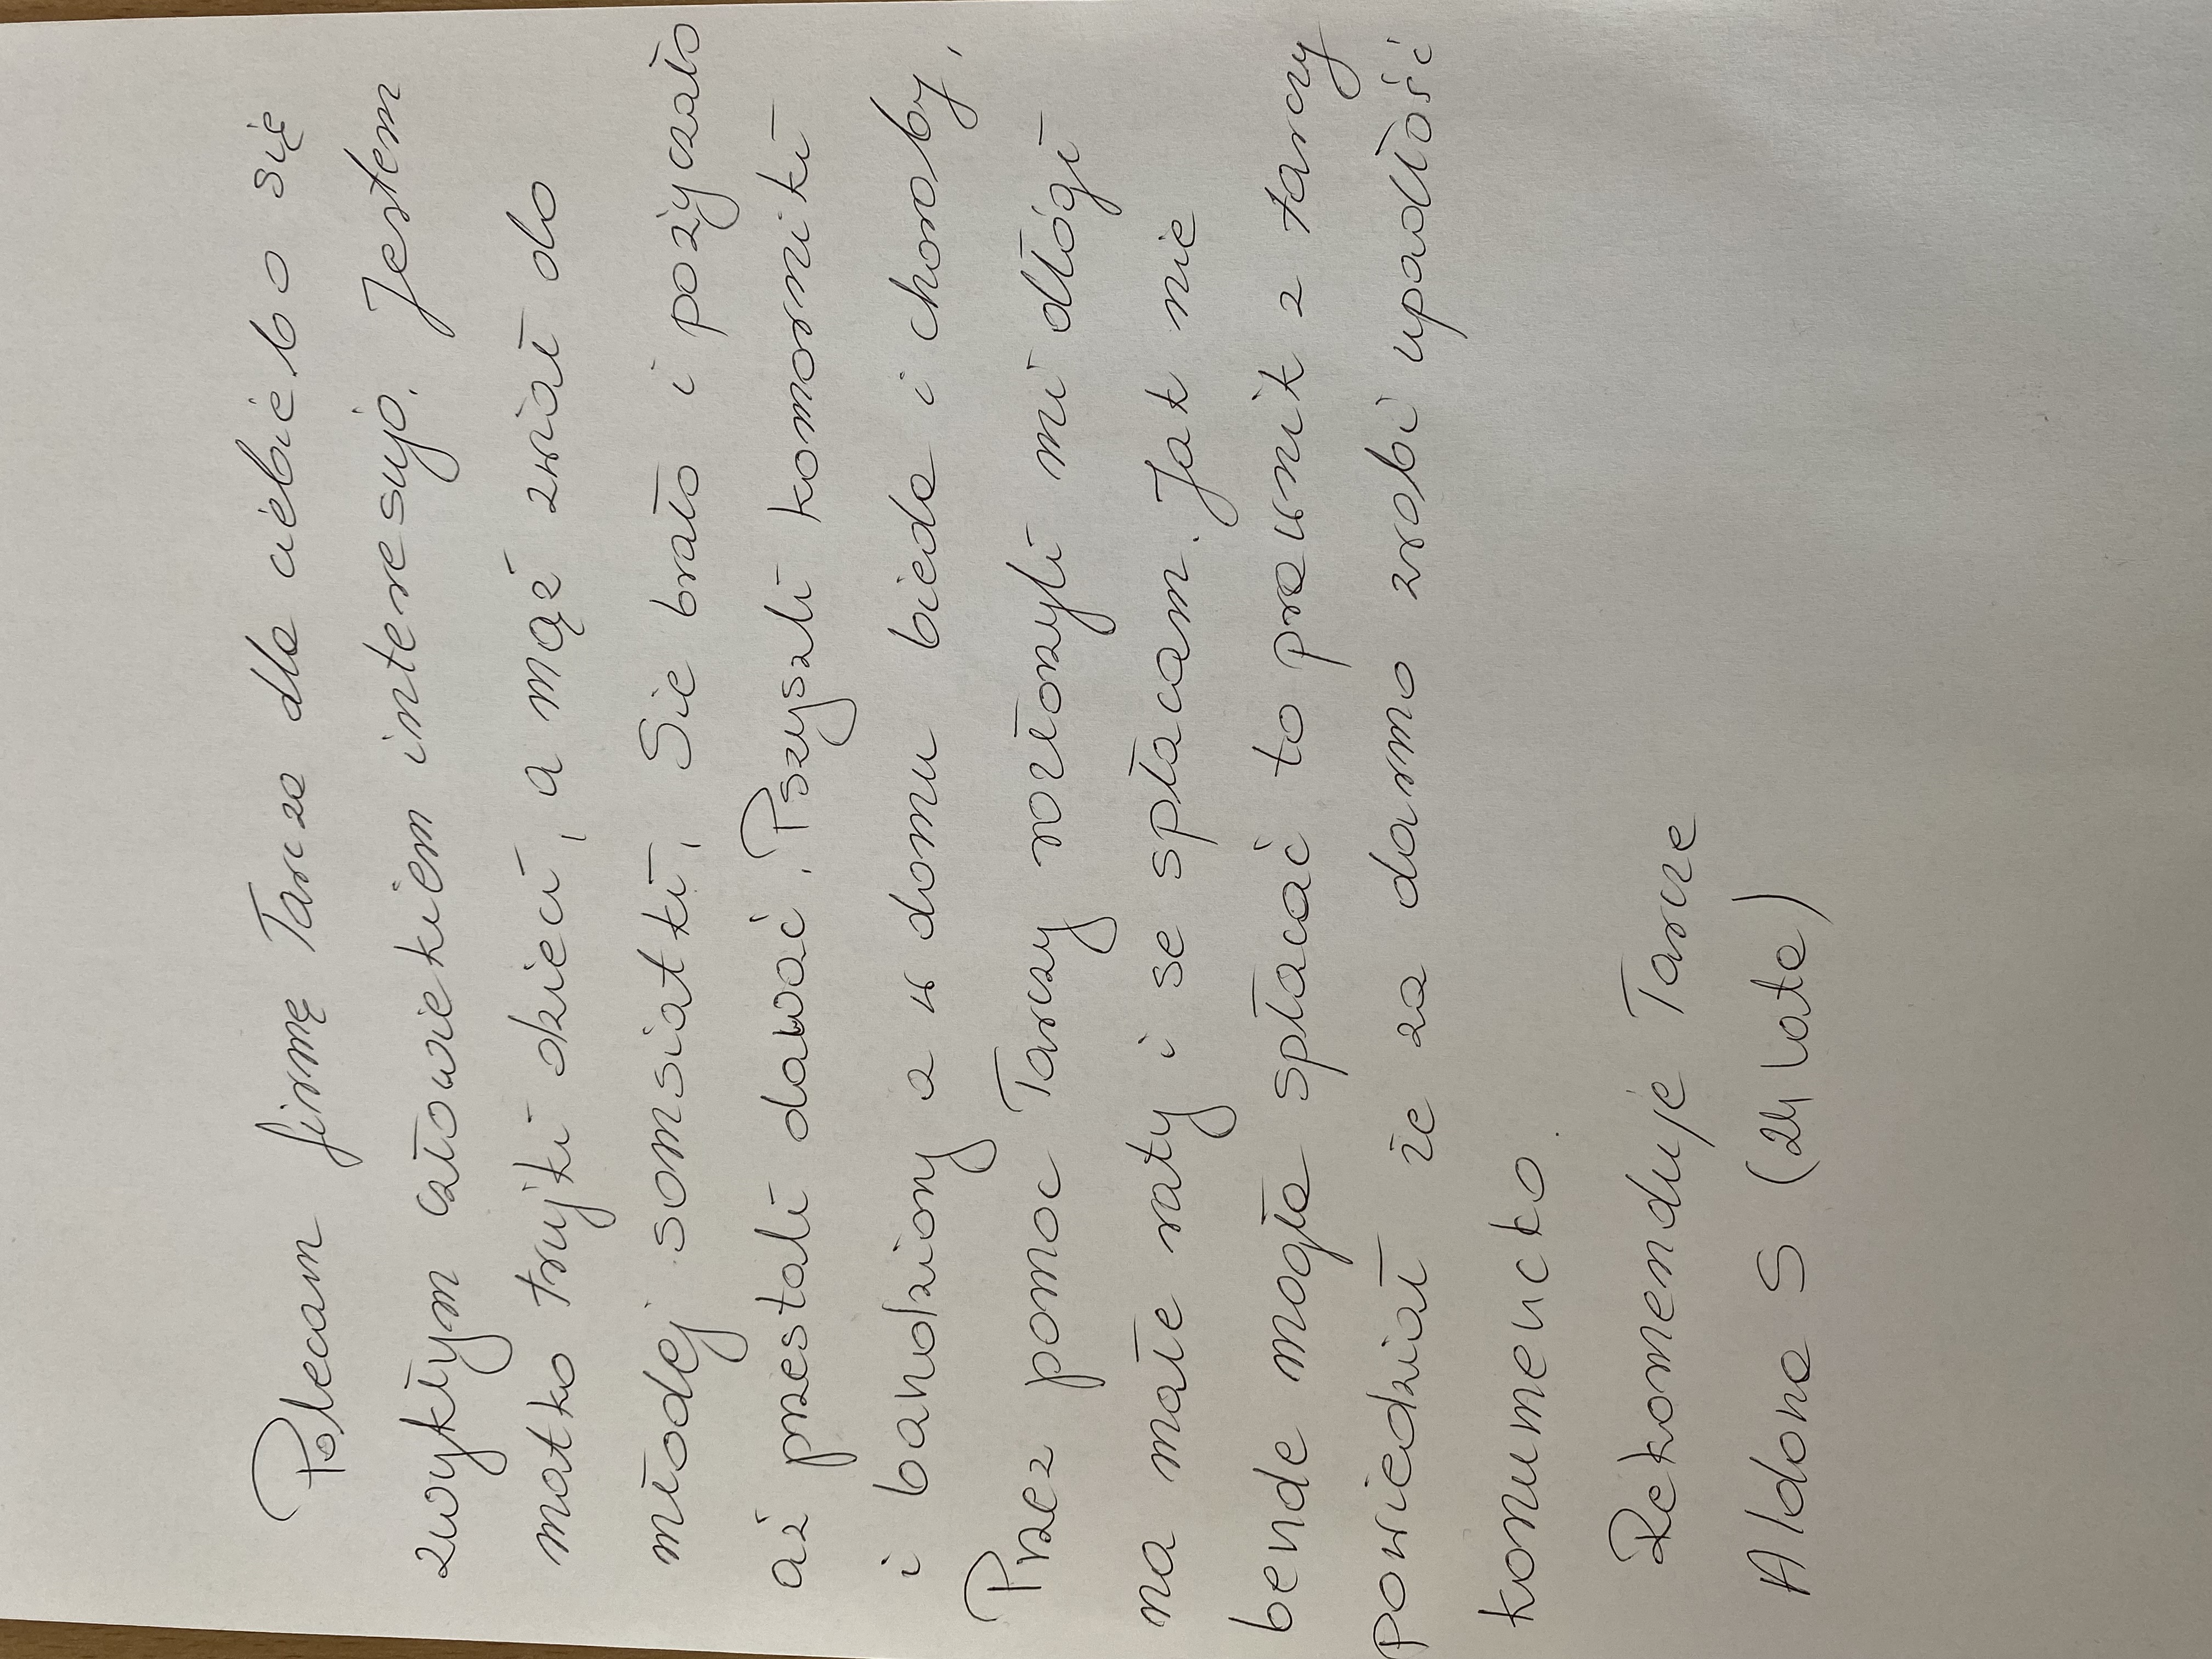 Polecam firmę Tarcza dla ciebie bo się
zwykłym człowiekiem interesujo. Jestem
matko trujki dzieci, a mąż zwiał do
młodej somsiatki, Sie brało i pożyczało
aż przestali dawać. Pszyszli komorniki
i bandziory a w domu bieda i choroby,
Przez pomoc Tarczy rozłorzyli mi dłógi
na małe raty i se spłacam. Jak nie
bende mogła spłacać to prawnik z tarczy
powiedział że za darmo zrobi upadłość
konumencko.
Rekomenduje Tarcze
Aldona S (24 lata)